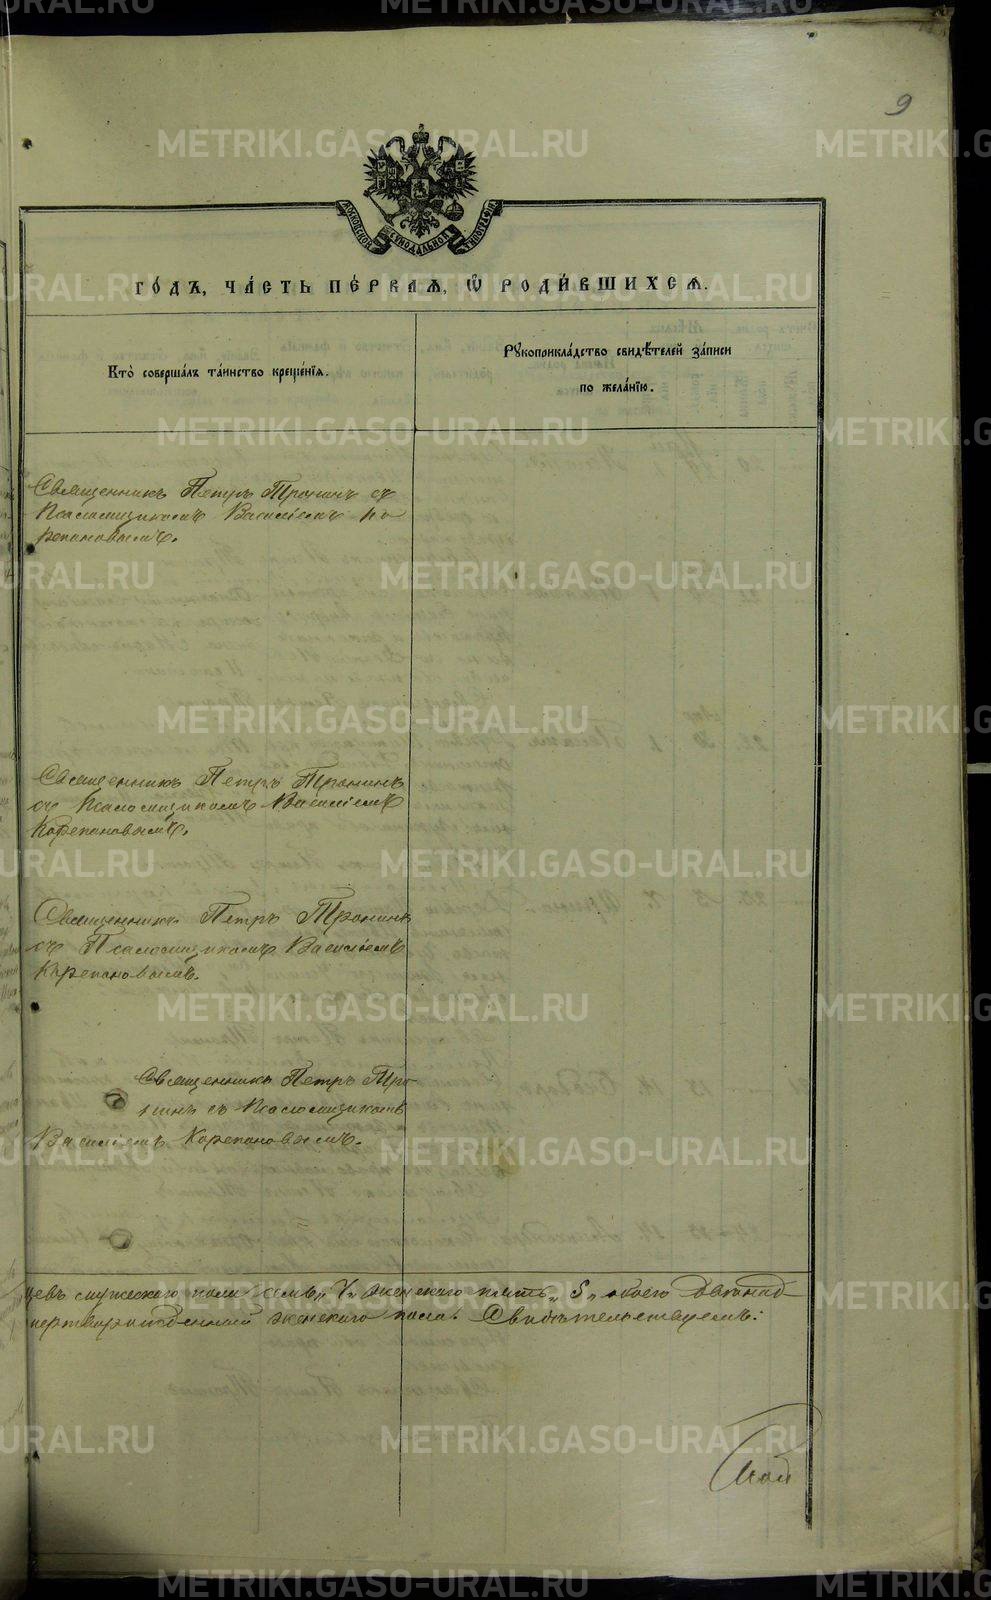 9
МОСКОВСКОЙ СѴНОДАЛЬНОЙ ТИПОГРАФІИ
ГО́ДЪ, ЧА́СТЬ ПЕ́РВАѦ, Ѽ РОДИ́ВШИХСѦ.
Кто̀ соверша́лъ та́инство креще́нїѧ.
Рꙋкоприкла́дство свидѣ́телей за́писи
по жела́нїю.
Священникъ Петръ Тронинъ съ
Псаломщикомъ Василіемъ Ко
репановымъ.
Священникъ Петръ Тронинъ
съ Псаломщикомъ Василіемъ
Корепановымъ.
Священникъ Петръ Тронинъ
съ Псаломщикомъ Василіемъ
Корепановымъ.
Священникъ Петръ Тро
нинъ съ Псаломщикомъ
Василіемъ Корепановымъ.
мужескаго пола семь „7„ женскаго пять „5„ обоего двѣнад
мертворожденный женскаго пола. Свидѣтельствуемъ:
METRIKI.GASO-URAL.RU